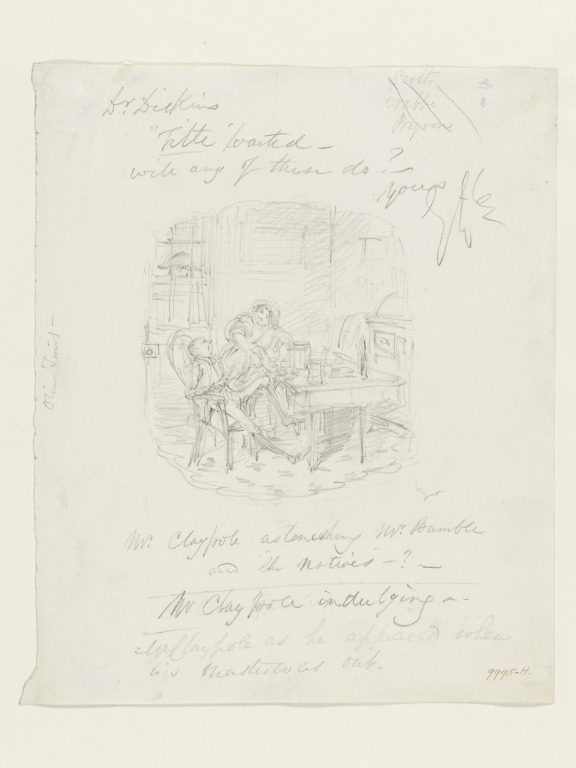 Dr Dickins
"Title" wanted -
will any of these do?
Yours
Scott
Byron
Oliver Twist -
Mr. Claypole astonishing Mr. Bumble
and "the Natives" - ? -
Mr. Claypole indulging -
Mr Claypole as he appeared when
his master was out.
9995-H.